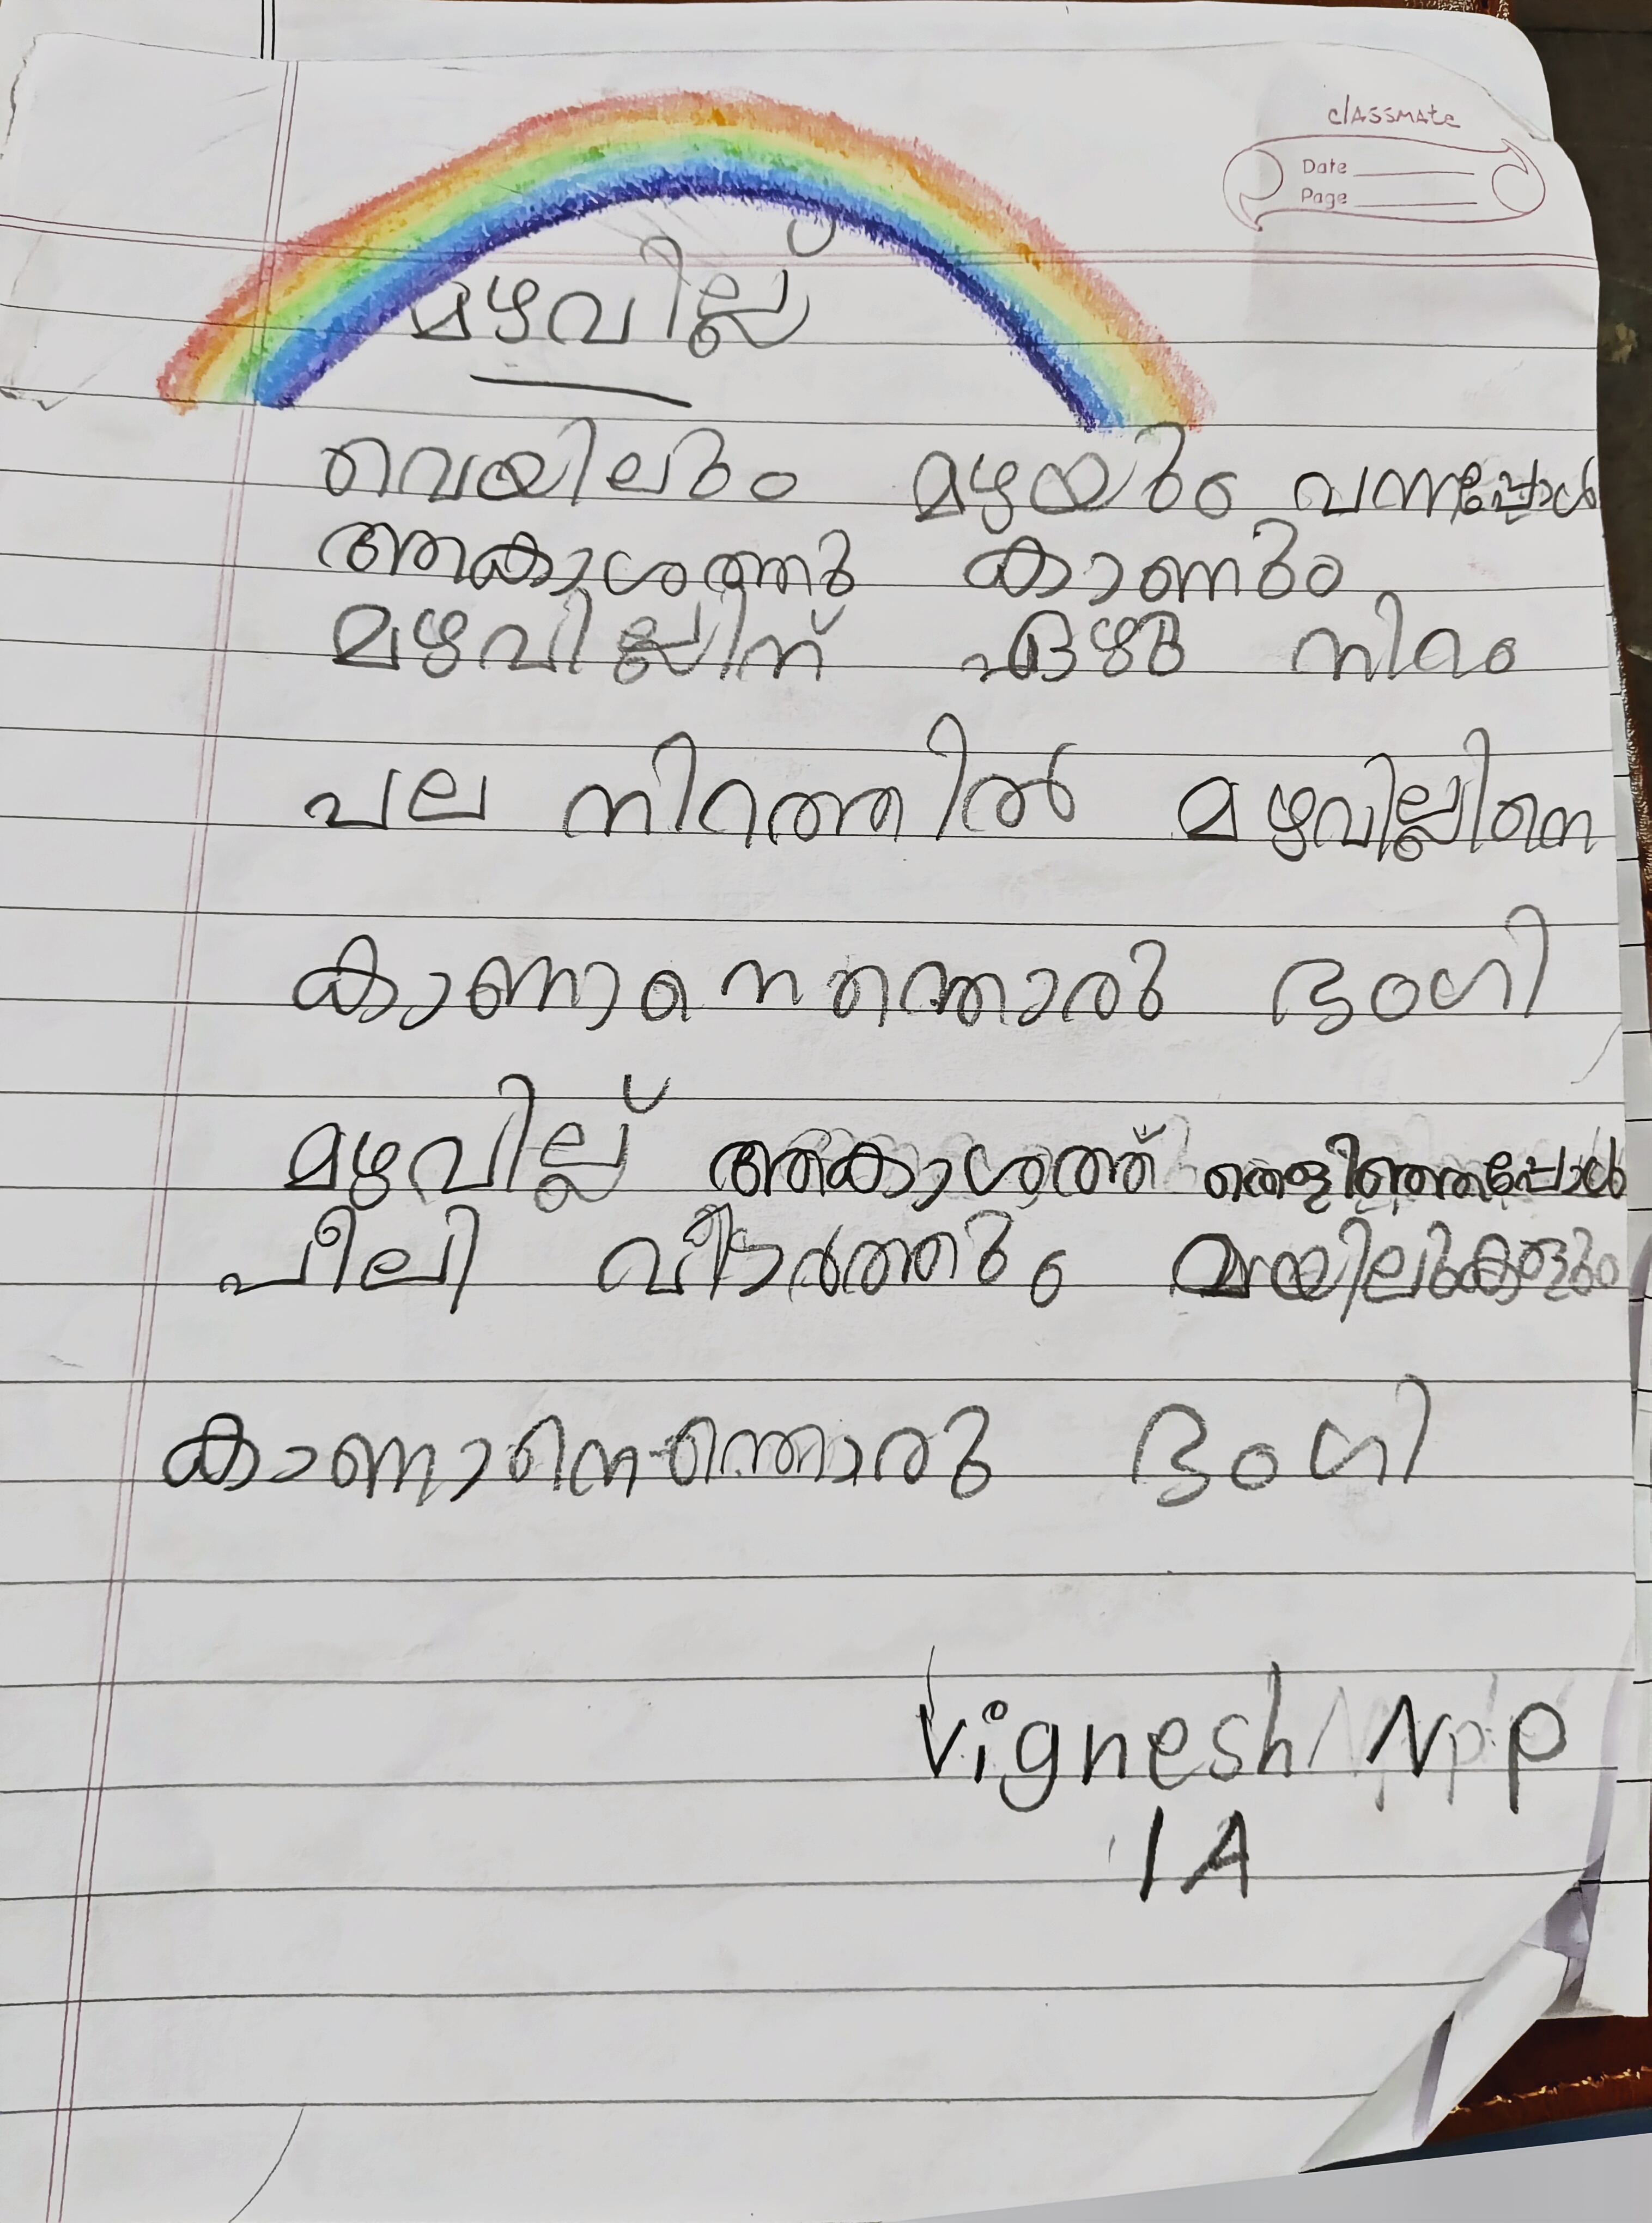 classmate
Date
Page
മഴവില്ല്
വെയിലും മഴയും വന്നപ്പോൾ
ആകാശത്തു കാണും
മഴവില്ലിന് ഏഴു നിറം
പല നിറത്തിൽ മഴവില്ലിനെ
കാണാനെന്തൊരു ഭംഗി
മഴവില്ല് ആകാശത്ത് തെളിഞ്ഞപ്പോൾ
പീലി വിടർത്തും മയിലുകളും
കാണാനെന്തൊരു ഭംഗി
Vignesh N P
1 A